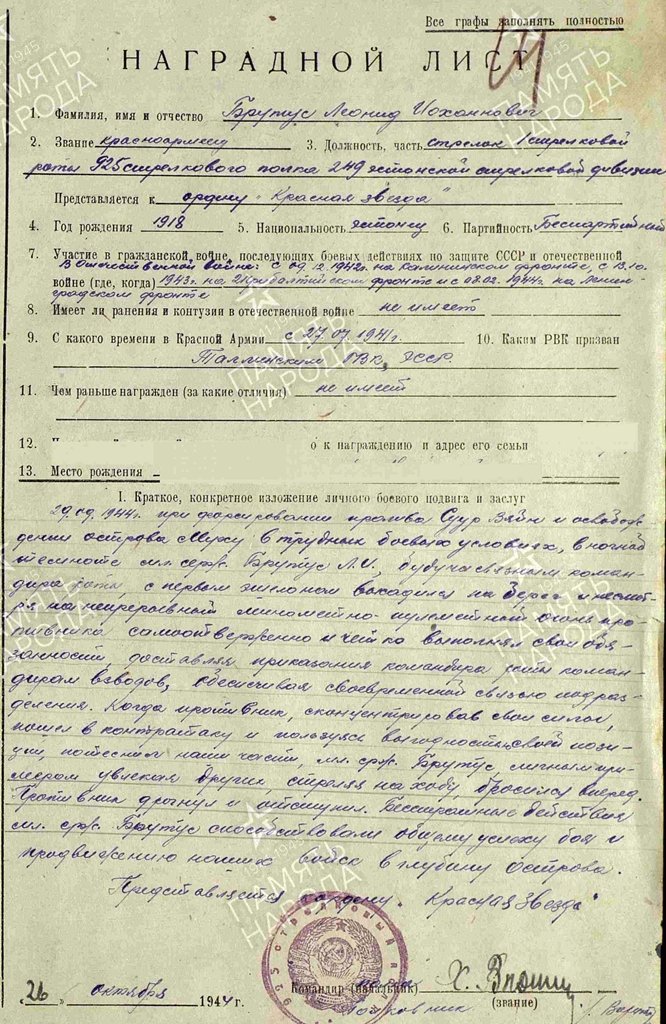 Все графы заполнять полностью
НАГРАДНОЙ ЛИСТ
1. Фамилия, имя и отчество Брутус Леонид Иоханнович
2. Звание красноармеец 3. Должность, часть стрелок 1 стрелковой
роты 925 стрелкового полка 249 эстонской стрелковой дивизии
Представляется к ордену "Красная звезда"
4. Год рождения 1918 5. Национальность эстонец 6. Партийность Беспартийный
7. Участие в гражданской войне, последующих боевых действиях по защите СССР и отечественной
В Отечественной войне: с 09.12.1942г. на Калининском фронте, с 13.10.
войне (где, когда) 1943г. на 2 Прибалтийском фронте и с 08.02.1944г. на Ленин-
градском фронте
8. Имеет ли ранения и контузии в отечественной войне не имеет
9. С какого времени в Красной Армии с 27.07.1941г. 10. Каким РВК призван
Таллинским РВК, ЭССР.
11. Чем раньше награжден (за какие отличия) не имеет
12. о к награждению и адрес его семьи
13. Место рождения
I. Краткое, конкретное изложение личного боевого подвига и заслуг
29.09.1944г. при форсировании пролива Суур Вяйн и освобож-
дении острова Муху в трудных боевых условиях, в ночной
темноте мл. серж. Брутус Л.И., будучи связным коман-
дира роты с первым эшелоном высадился на берег и несмот-
ря на непрерывный минометно-пулеметный огонь про-
тивника самоотверженно и четко выполнял свои обя-
занности, доставляя приказания командира роты коман-
дирам взводов, обеспечивая своевременной связью подраз-
деления. Когда противник, сконцентрировав свои силы,
пошел в контратаку и пользуясь выгодностью своей пози-
ции, потеснил наши части, мл. серж. Брутус личным при-
мером увлекая других, стреляя на ходу бросился вперед.
Противник дрогнул и отступил. Бесстрашные действия
мл. серж. Брутус способствовали общему успеху боя и
продвижению наших войск в глубину острова.
Представляется к ордену "Красная Звезда"
925 СТРЕЛКОВЫЙ ПОЛК
Командир (начальник)
Полковник (звание)
"26" октября 1944г.
ПАМЯТЬ НАРОДА